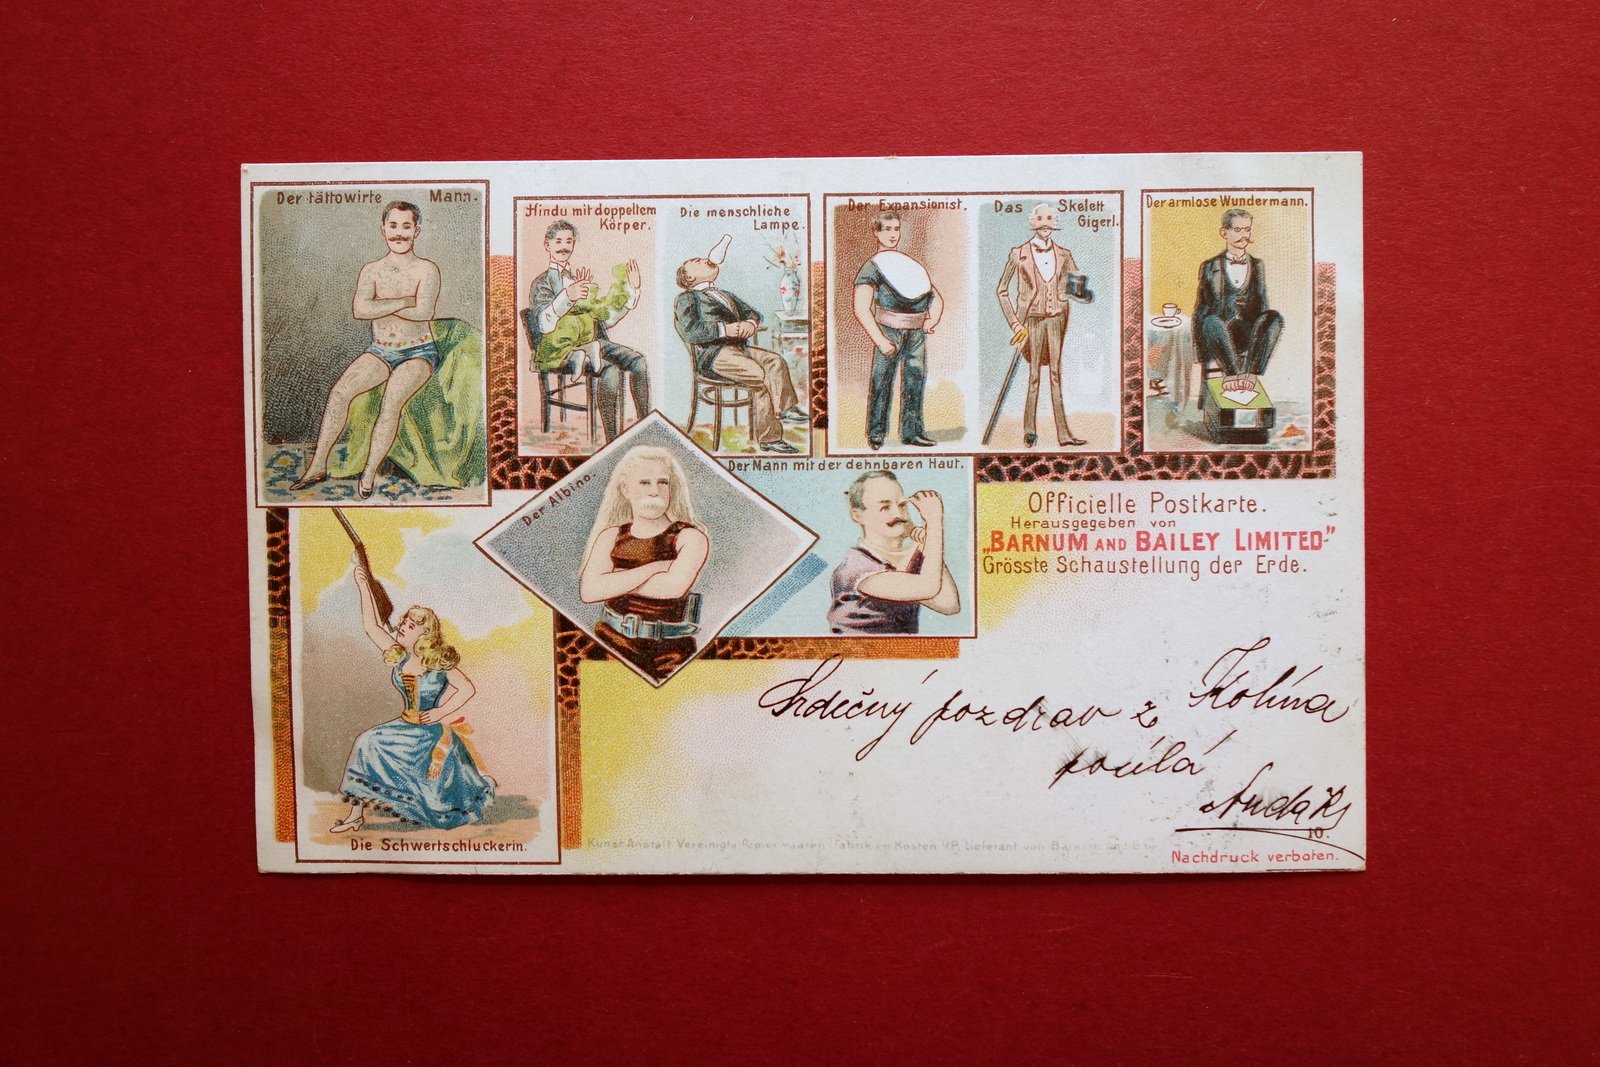 Der tättowirte Mann.
Hindu mit doppeltem
Körper.
Die menschliche
Lampe.
Der Expansionist.
Das Skelett
Gigerl.
Der armlose Wundermann.
Der Albino.
Der Mann mit der dehnbaren Haut.
Officielle Postkarte.
Herausgegeben von
„BARNUM AND BAILEY LIMITED”
Grösste Schaustellung der Erde.
Srdečný pozdrav z Kolína
posílá
10.
Die Schwertschluckerin.
Kunst Anstalt Vereinigte Papierwaaren Fabriken Lieferant von
Nachdruck verboten.